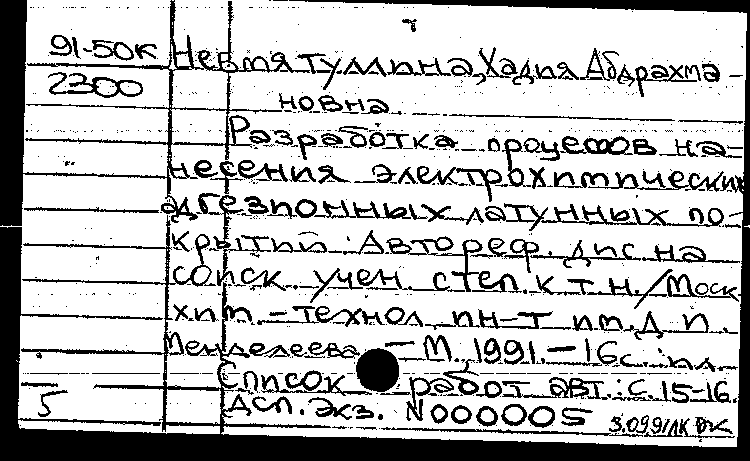 91-50К Невмятуллина, Хадия Абдрахма-
2300
новна.
Разработка процессов на-
несения электрохимических
адгезионных латунных по-
крытий : Автореф. дис. на
соиск. учен. степ. к. т. н. / Моск.
хим.-технол. ин-т им. Д. И.
Менделеева. - М., 1991. - 16 с. : ил.
Список работ авт.: с. 15-16.
5 Дсп. Экз. N000005